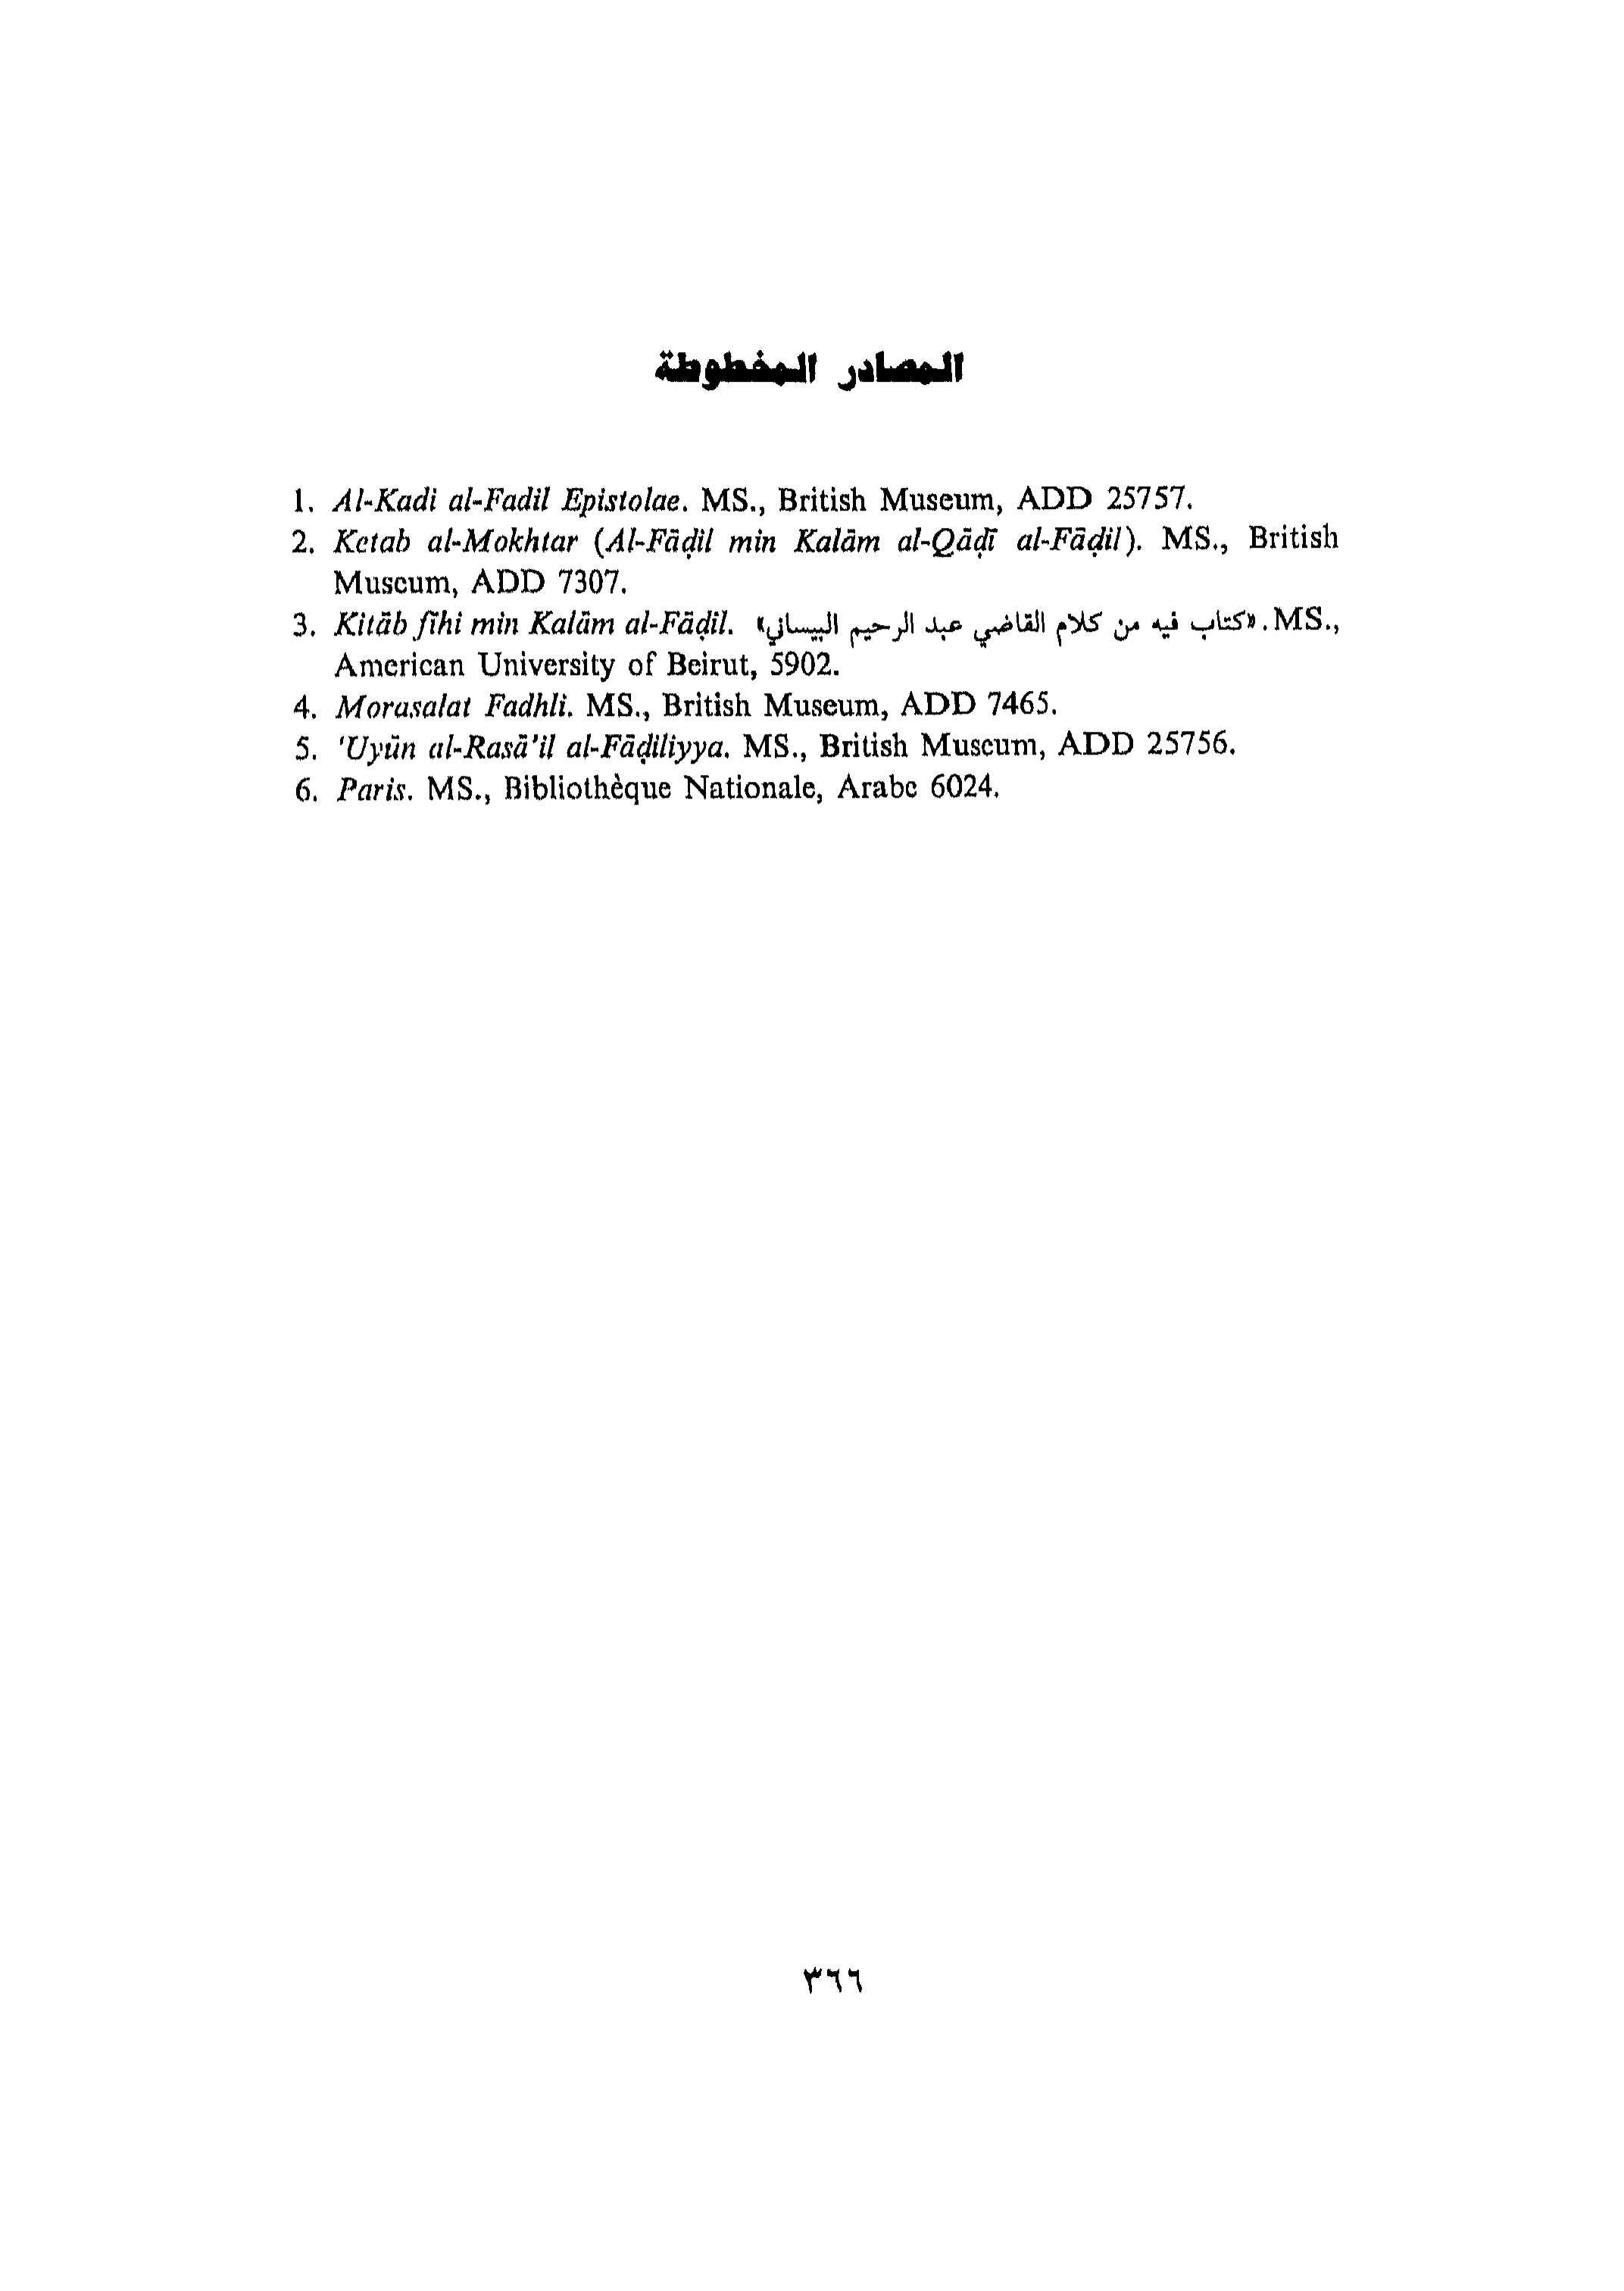 المصادر المخطوطة
1. Al-Kadi al-Fadil Epistolae. MS., British Museum, ADD 25757.
2. Ketab al-Mokhtar (Al-Fāḍil min Kalām al-Qāḍī al-Fāḍil). MS., British
Museum, ADD 7307.
3. Kitāb fīhi min Kalām al-Fāḍil. «كتاب فيه من كلام القاضي عبد الرحيم البيساني». MS.,
American University of Beirut, 5902.
4. Morasalat Fadhli. MS., British Museum, ADD 7465.
5. 'Uyūn al-Rasā'il al-Fāḍiliyya. MS., British Museum, ADD 25756.
6. Paris. MS., Bibliothèque Nationale, Arabe 6024.
٣٦٦